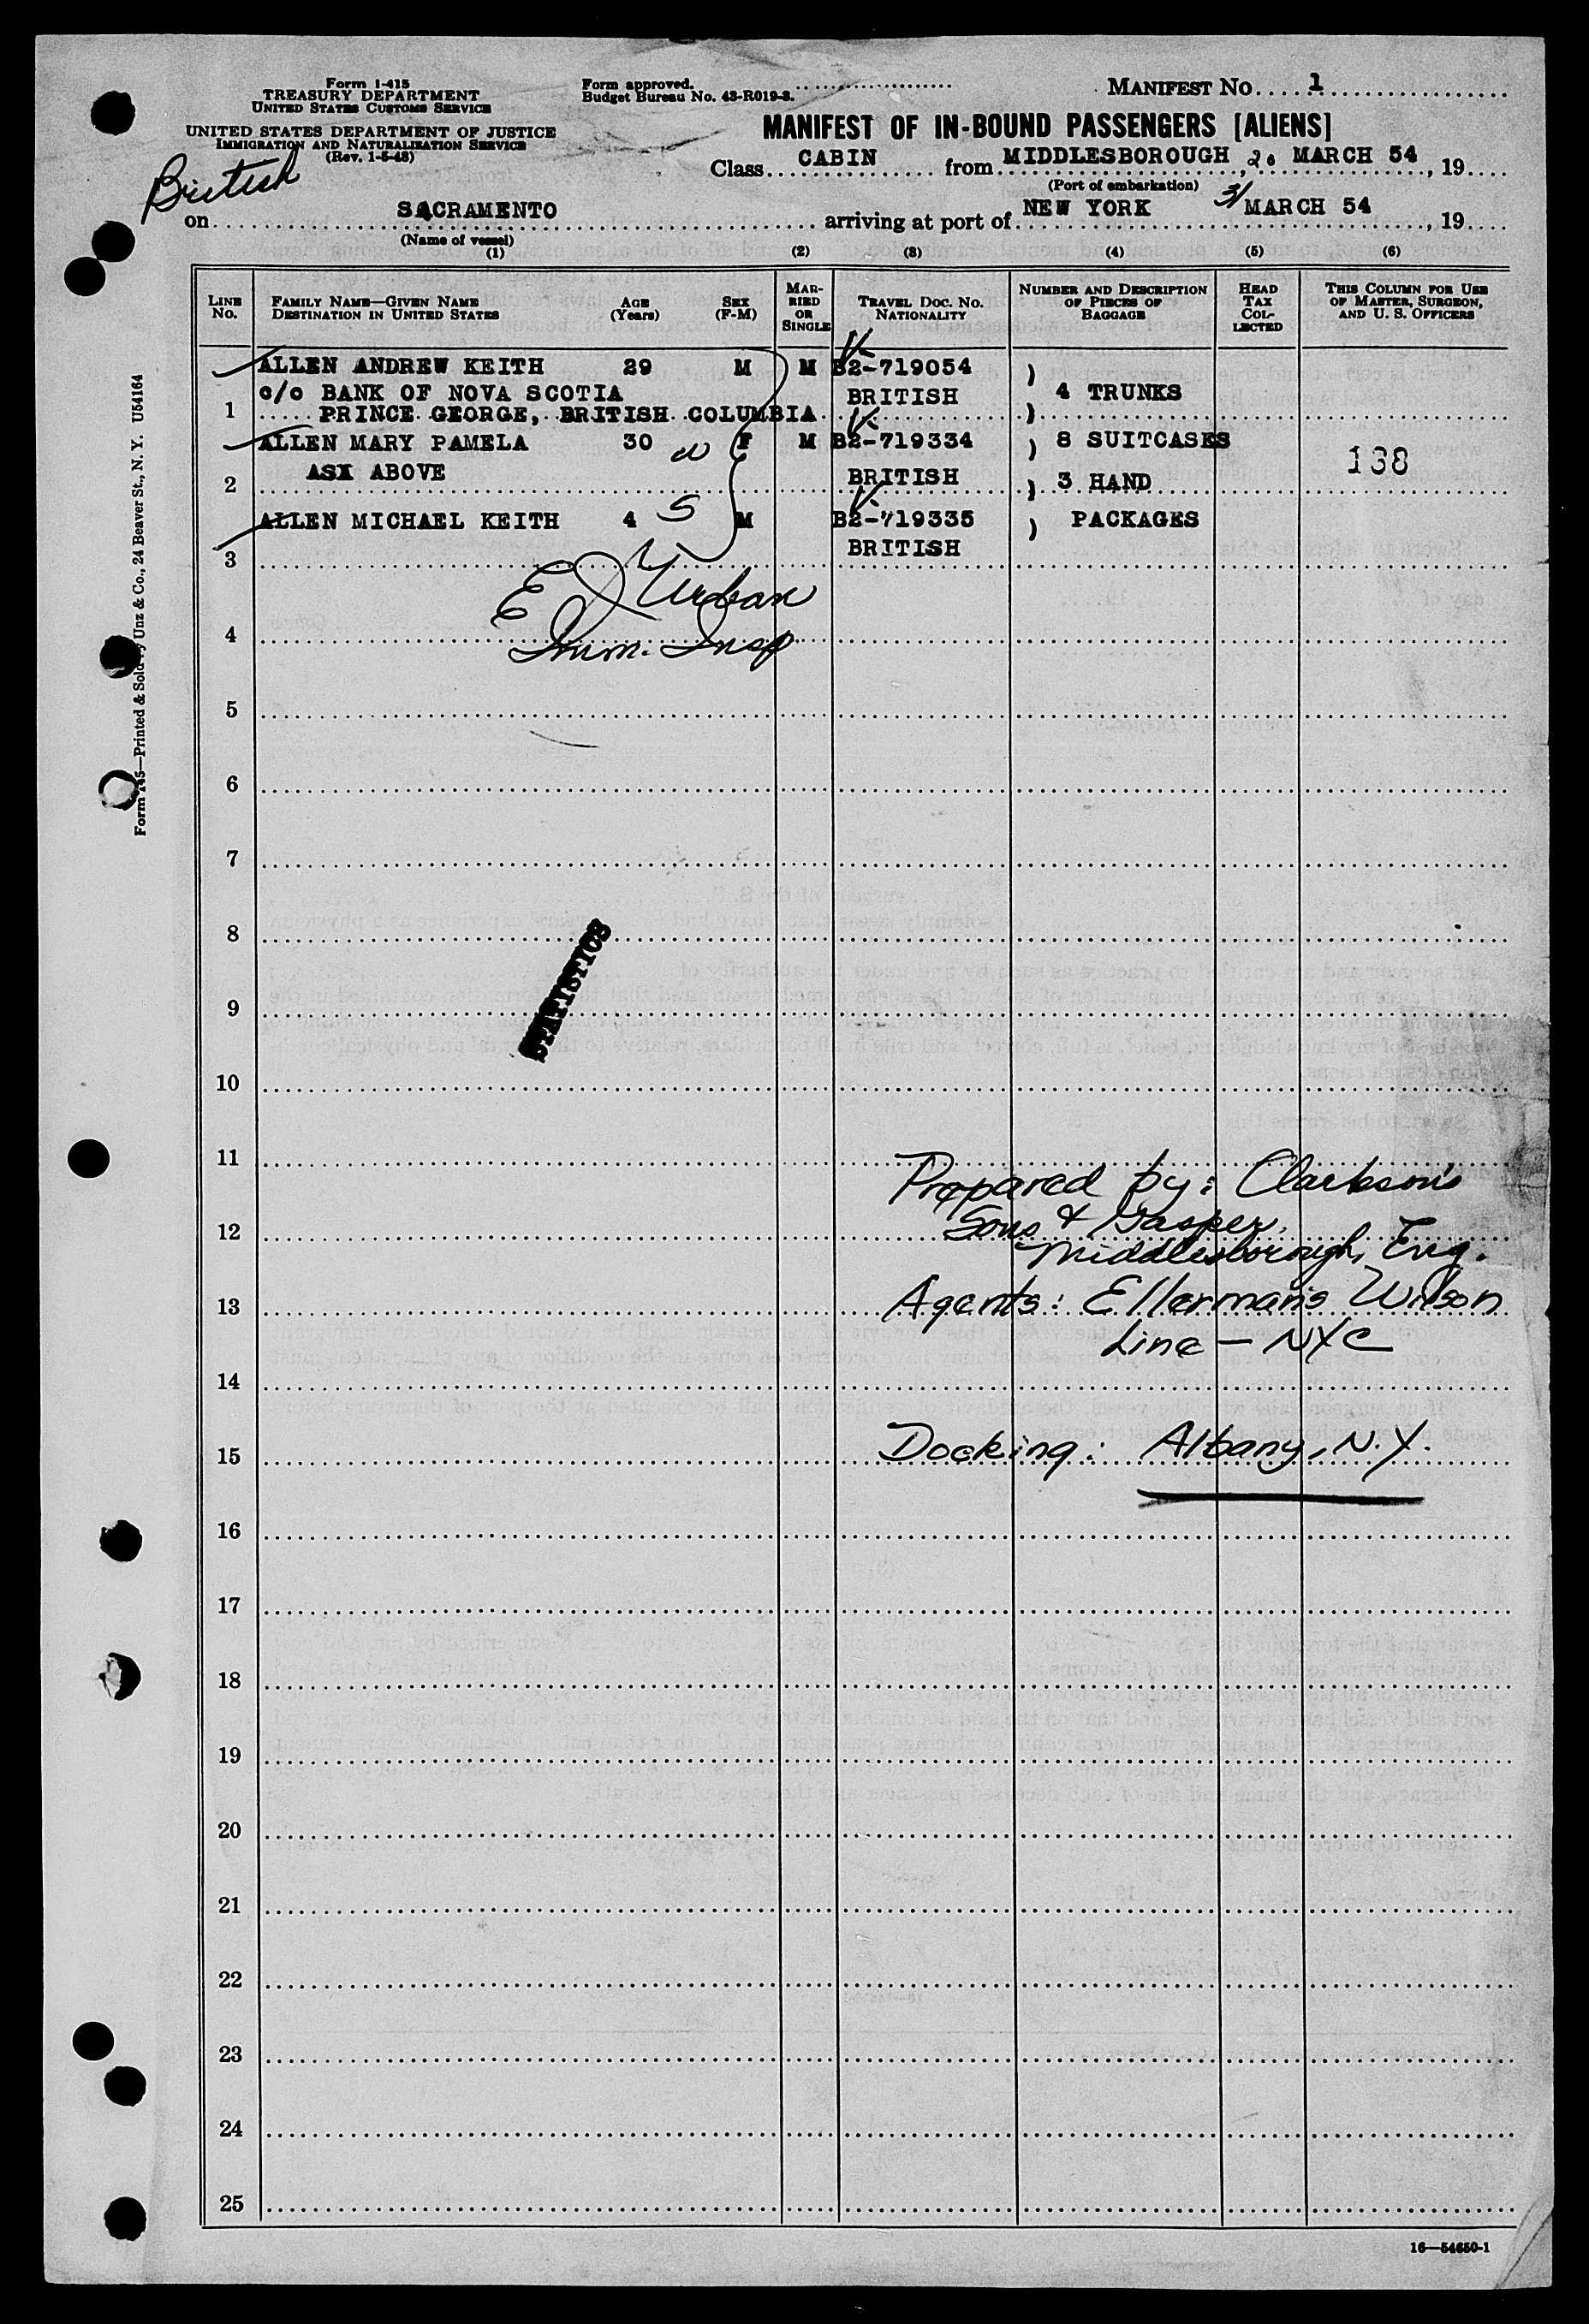 Form I-415
TREASURY DEPARTMENT
UNITED STATES CUSTOMS SERVICE
UNITED STATES DEPARTMENT OF JUSTICE
IMMIGRATION AND NATURALIZATION SERVICE
(Rev. 1-5-48)
British
Form approved.
Budget Bureau No. 43-R019-3.
MANIFEST No. 1
MANIFEST OF IN-BOUND PASSENGERS [ALIENS]
Class CABIN from MIDDLESBOROUGH, 20 MARCH 54, 19
(Port of embarkation)
on SACRAMENTO arriving at port of NEW YORK 31 MARCH 54, 19
(Name of vessel)
(1) (2) (3) (4) (5) (6)
LINE No. FAMILY NAME—GIVEN NAME DESTINATION IN UNITED STATES AGE (Years) SEX (F-M) MARRIED OR SINGLE TRAVEL DOC. NO. NATIONALITY NUMBER AND DESCRIPTION OF PIECES OF BAGGAGE HEAD TAX COLLECTED THIS COLUMN FOR USE OF MASTER, SURGEON, AND U. S. OFFICERS
ALLEN ANDREW KEITH 29 M M B2-719054 )
c/o BANK OF NOVA SCOTIA BRITISH 4 TRUNKS
1 PRINCE GEORGE, BRITISH COLUMBIA )
ALLEN MARY PAMELA 30 W F M B2-719334 ) 8 SUITCASES
ASX ABOVE 138
2 BRITISH ) 3 HAND
ALLEN MICHAEL KEITH 4 S M B2-719335 ) PACKAGES
3 BRITISH
E J Urban
4 Imm. Insp
5
6
7
8
STATISTICS
9
10
11
Prepared by: Clarkson's
12 Sons & Gasper,
Middlesborough, Eng.
13 Agents: Ellerman's Wilson
Line — NYC
14
15 Docking: Albany, N.Y.
16
17
18
19
20
21
22
23
24
25
16—54650-1
Form 415—Printed & Sold by Unz & Co., 24 Beaver St., N. Y. U54164